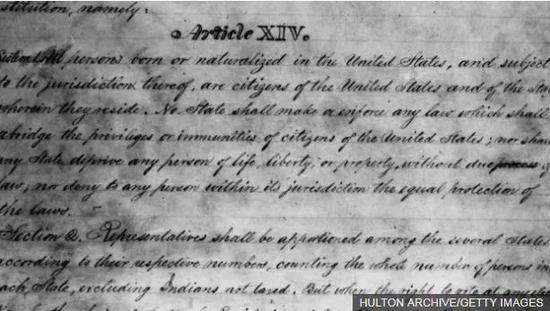 stitution, namely:
Article XIV.
Section 1. All persons born or naturalized in the United States, and subject
to the jurisdiction thereof, are citizens of the United States and of the Stat
wherein they reside. No State shall make or enforce any law which shall
abridge the privileges or immunities of citizens of the United States; nor shall
any State deprive any person of life, liberty, or property, without due process of
law; nor deny to any person within its jurisdiction the equal protection of
the laws.
Section 2. Representatives shall be apportioned among the several States
according to their respective numbers, counting the whole number of persons in
each State, excluding Indians not taxed. But when the right to vote at any elec
HULTON ARCHIVE/GETTY IMAGES